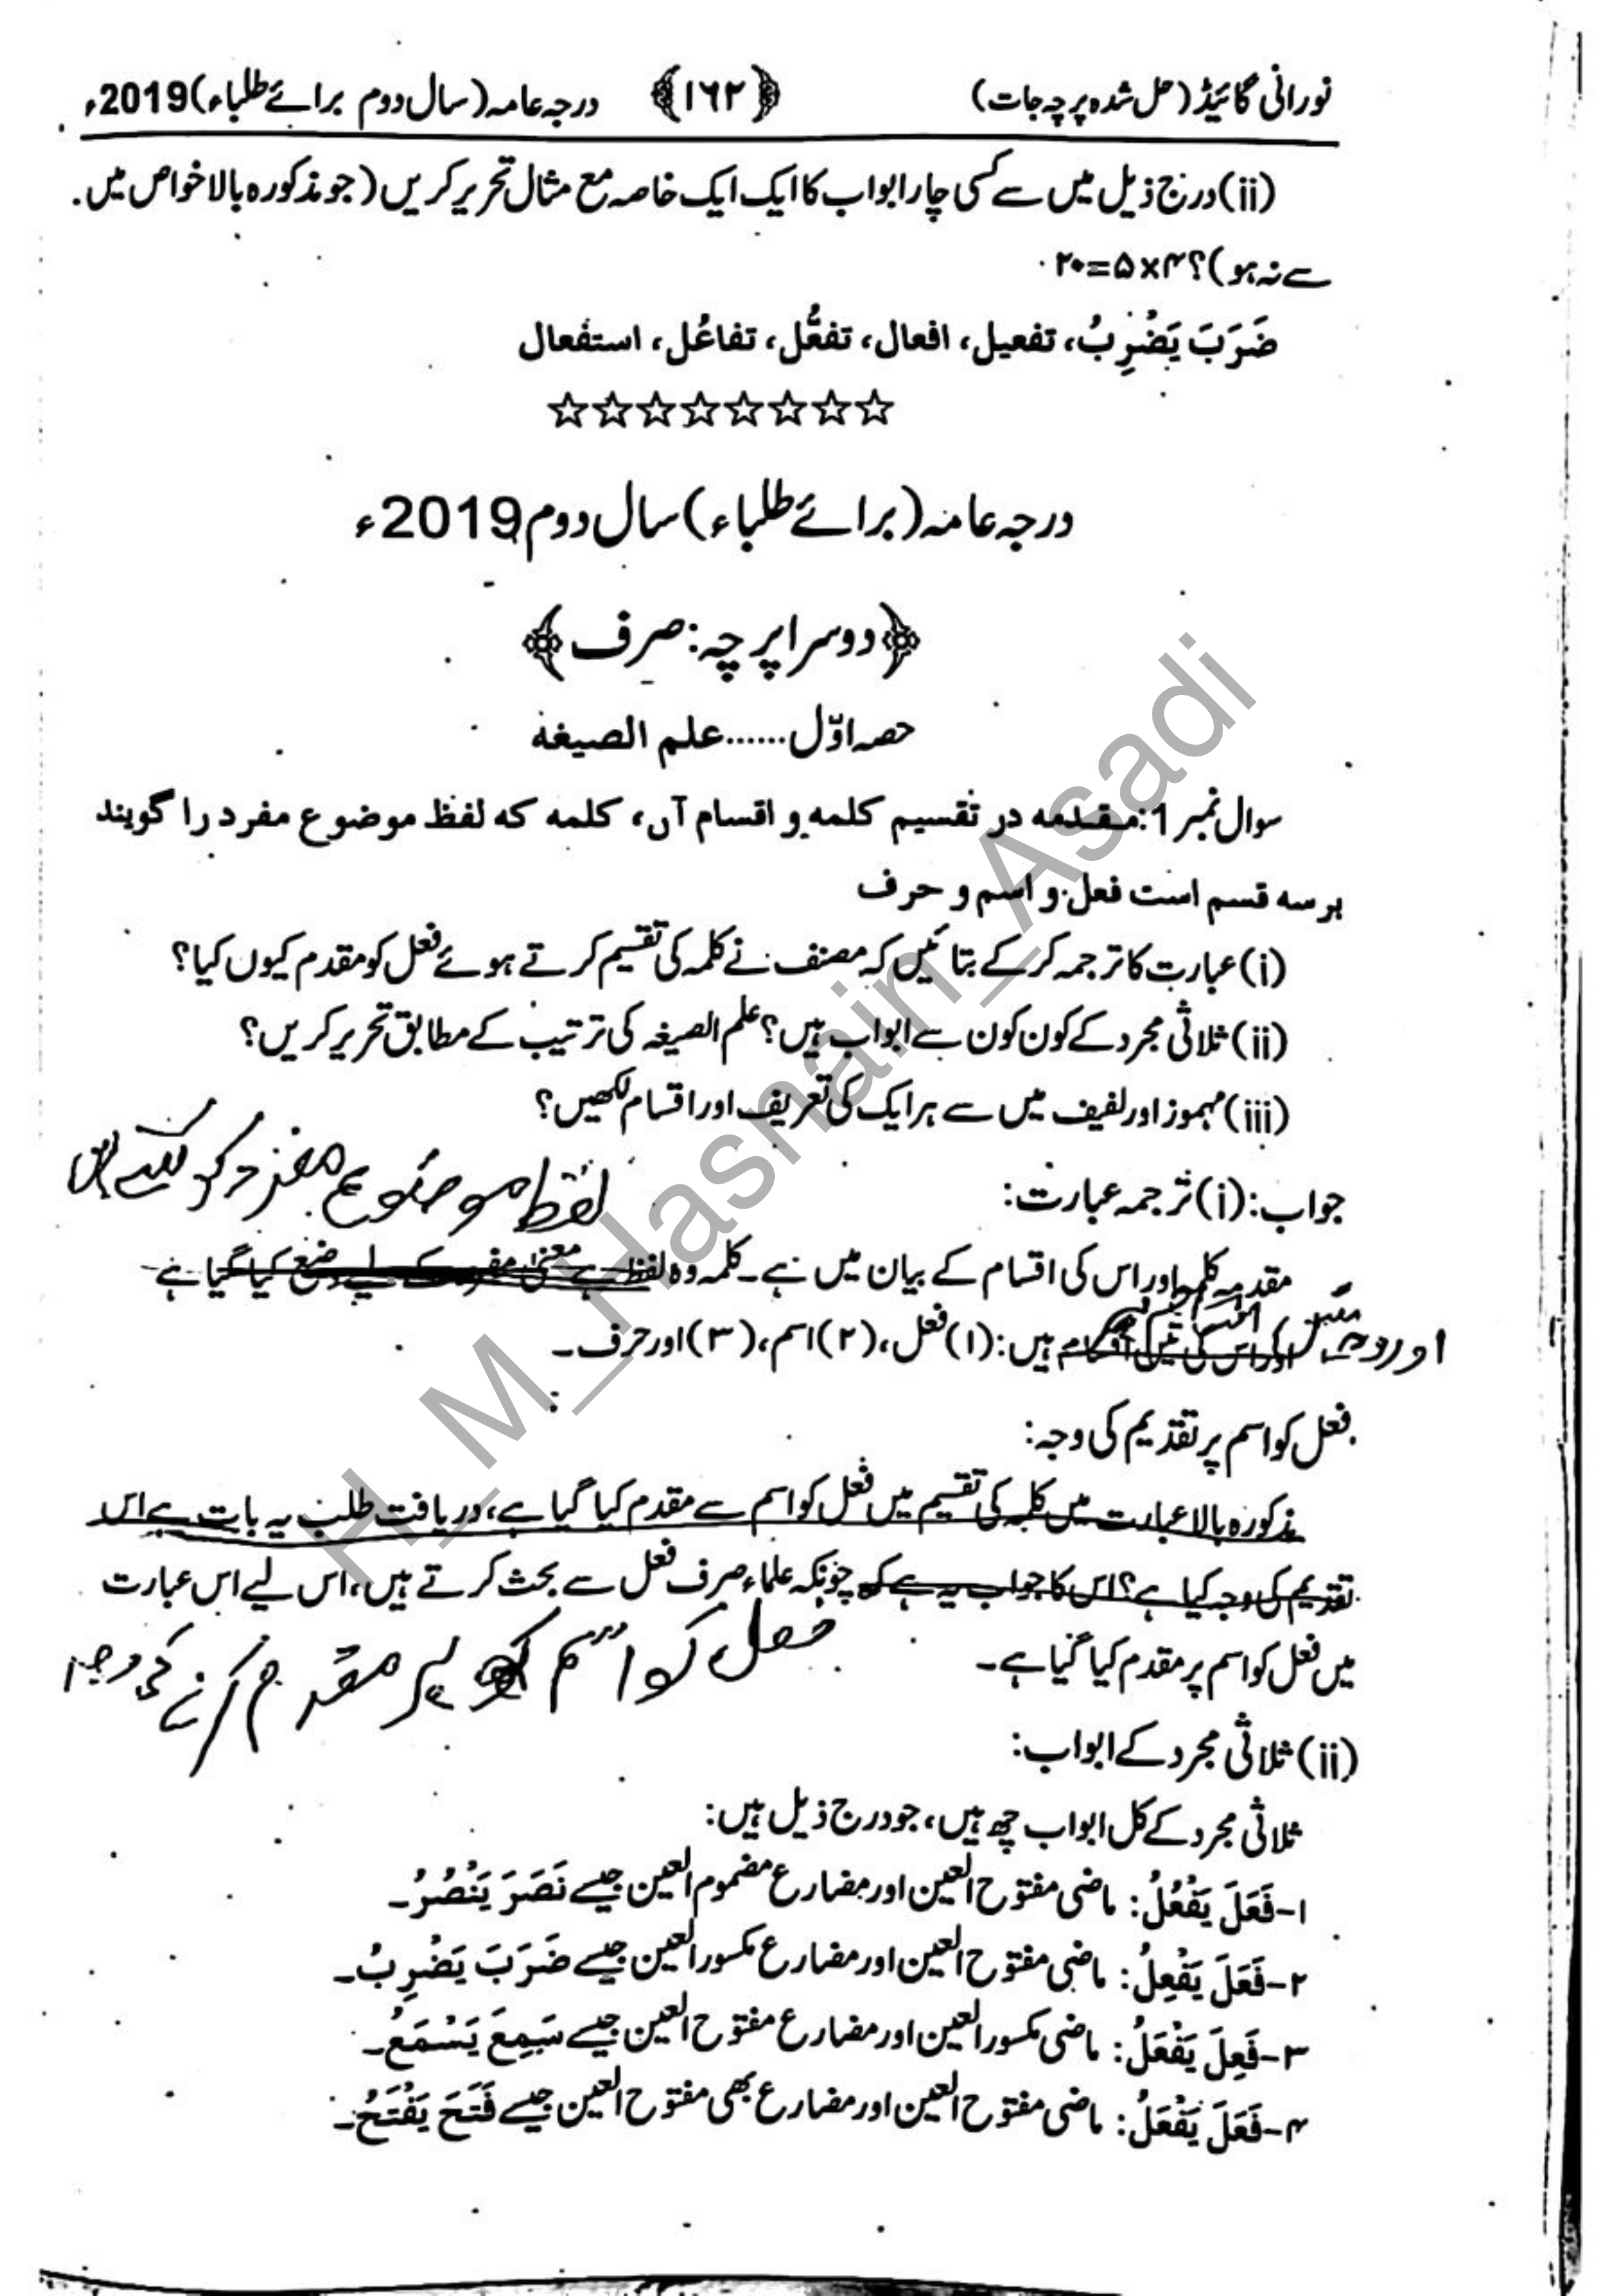 نورانی گائیڈ (حل شدہ پرچہ جات) ﴿۱۶۲﴾ درجہ عامہ (سال دوم برائے طلباء) 2019ء
(ii) درج ذیل میں سے کسی چار ابواب کا ایک ایک خاصہ مع مثال تحریر کریں (جو مذکورہ بالا خواص میں
سے نہ ہو)؟ ۴×۵=۲۰
ضَرَبَ یَضْرِبُ، تفعیل، افعال، تفعُّل، تفاعُل، استفعال
☆☆☆☆☆☆☆☆
درجہ عامہ (برائے طلباء) سال دوم 2019ء
﴿دوسرا پرچہ: صرف﴾
حصہ اوّل......علم الصیغہ
سوال نمبر 1: مقدمہ در تقسیم کلمہ و اقسام آں، کلمہ کہ لفظ موضوع مفرد را گویند
بر سہ قسم است فعل و اسم و حرف
(i) عبارت کا ترجمہ کر کے بتائیں کہ مصنف نے کلمہ کی تقسیم کرتے ہوئے فعل کو مقدم کیوں کیا؟
(ii) ثلاثی مجرد کے کون کون سے ابواب ہیں؟ علم الصیغہ کی ترتیب کے مطابق تحریر کریں؟
(iii) مہموز اور لفیف میں سے ہر ایک کی تعریف اور اقسام لکھیں؟
جواب: (i) ترجمہ عبارت:
لفظ موضوع مفرد کو کہتے ہیں
مقدمہ کلمہ اور اس کی اقسام کے بیان میں ہے۔ کلمہ وہ لفظ ہے معنی مفرد کے لیے وضع کیا گیا ہے
اور اس کی تین اقسام ہیں: (۱) فعل، (۲) اسم، (۳) اور حرف۔
فعل کو اسم پر تقدیم کی وجہ:
مذکورہ بالا عبارت میں کلمہ کی تقسیم میں فعل کو اسم سے مقدم کیا گیا ہے، دریافت طلب یہ بات ہے اس
تقدیم کی وجہ کیا ہے؟ اس کا جواب یہ ہے کہ چونکہ علماء صرف فعل سے بحث کرتے ہیں، اس لیے اس عبارت
میں فعل کو اسم پر مقدم کیا گیا ہے۔
فعل کو اسم پر مقدم کرنے کی وجہ
(ii) ثلاثی مجرد کے ابواب:
ثلاثی مجرد کے کل ابواب چھ ہیں، جو درج ذیل ہیں:
۱-فَعَلَ یَفْعُلُ: ماضی مفتوح العین اور مضارع مضموم العین جیسے نَصَرَ یَنْصُرُ۔
۲-فَعَلَ یَفْعِلُ: ماضی مفتوح العین اور مضارع مکسور العین جیسے ضَرَبَ یَضْرِبُ۔
۳-فَعِلَ یَفْعَلُ: ماضی مکسور العین اور مضارع مفتوح العین جیسے سَمِعَ یَسْمَعُ۔
۴-فَعَلَ یَفْعَلُ: ماضی مفتوح العین اور مضارع بھی مفتوح العین جیسے فَتَحَ یَفْتَحُ۔
H_M_Hasnain_Asadi